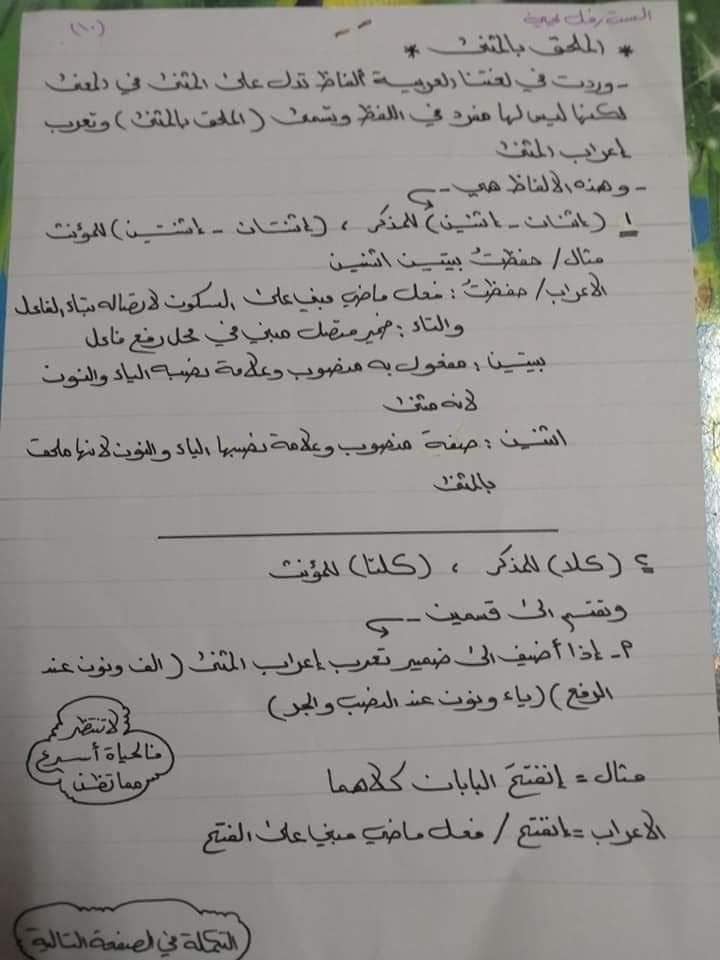 الست رفل
(١٠)
* الملحق بالمثنى *
- وردت في لغتنا العربية ألفاظ تدل على المثنى في المعنى
لكنها ليس لها مفرد في اللفظ وتسمى (الملحق بالمثنى) وتعرب
إعراب المثنى
- وهذه الالفاظ هي -
١ (اثنان - اثنين) للمذكر ، (اثنتان - اثنتين) للمؤنث
مثال / حفظتُ بيتين اثنين
الاعراب / حفظتُ : فعل ماضي مبني على السكون لاتصاله بتاء الفاعل
والتاء : ضمير متصل مبني في محل رفع فاعل
بيتين : مفعول به منصوب وعلامة نصبه الياء والنون
لانه مثنى
اثنين : صفة منصوب وعلامة نصبها الياء والنون لانها ملحق
بالمثنى
٢ (كلا) للمذكر ، (كلتا) للمؤنث
وتقسم الى قسمين -
أ- إذا أضيف الى ضمير تعرب إعراب المثنى (الف ونون عند
الرفع) (ياء ونون عند النصب والجر)
لا تنتظر
فالحياة أسرع
مما تظن
مثال = إنفتحَ البابان كلاهما
الاعراب = انفتح / فعل ماضي مبني على الفتح
التكملة في الصفحة التالية